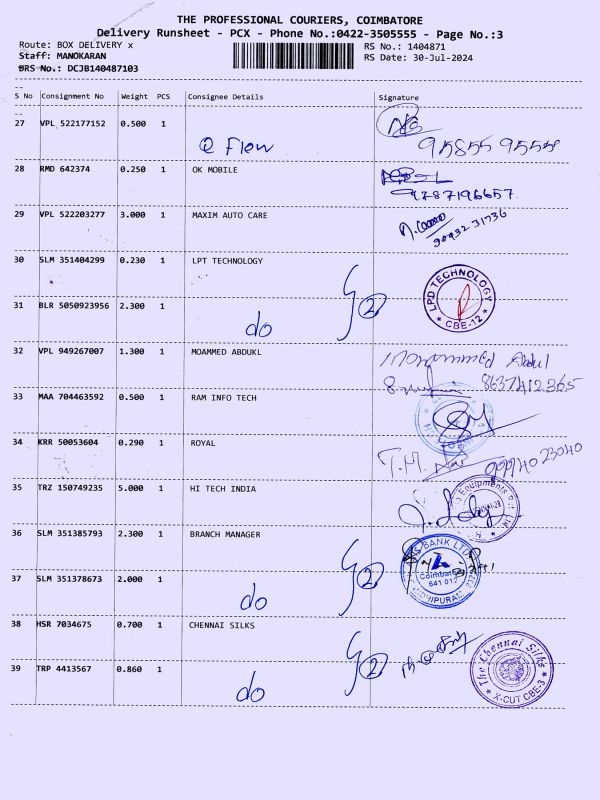 THE PROFESSIONAL COURIERS, COIMBATORE
Delivery Runsheet - PCX - Phone No.:0422-3505555 - Page No.:3
Route: BOX DELIVERY x RS No.: 1404871
Staff: MANOKARAN RS Date: 30-Jul-2024
DRS No.: DCJB140487103
S No Consignment No Weight PCS Consignee Details Signature
27 VPL 522177152 0.500 1
Q Flow 95855 95555
28 RMD 642374 0.250 1 OK MOBILE
9787196657
29 VPL 522203277 3.000 1 MAXIM AUTO CARE
90432 31736
30 SLM 351404299 0.230 1 LPT TECHNOLOGY
LPD TECHNOLOGY * CBE-12 *
31 BLR 5050923956 2.300 1
do 2
32 VPL 949267007 1.300 1 MOAMMED ABDUKL
Mohammed Abdul
8637412365
33 MAA 704463592 0.500 1 RAM INFO TECH
34 KRR 50053604 0.290 1 ROYAL
35 TRZ 150749235 5.000 1 HI TECH INDIA
36 SLM 351385793 2.300 1 BRANCH MANAGER
BANK LTD
Coimbatore
641 012
37 SLM 351378673 2.000 1
do 2
38 HSR 7034675 0.700 1 CHENNAI SILKS
The Chennai Silks * X-CUT CBE-3 *
39 TRP 4413567 0.860 1
do 2